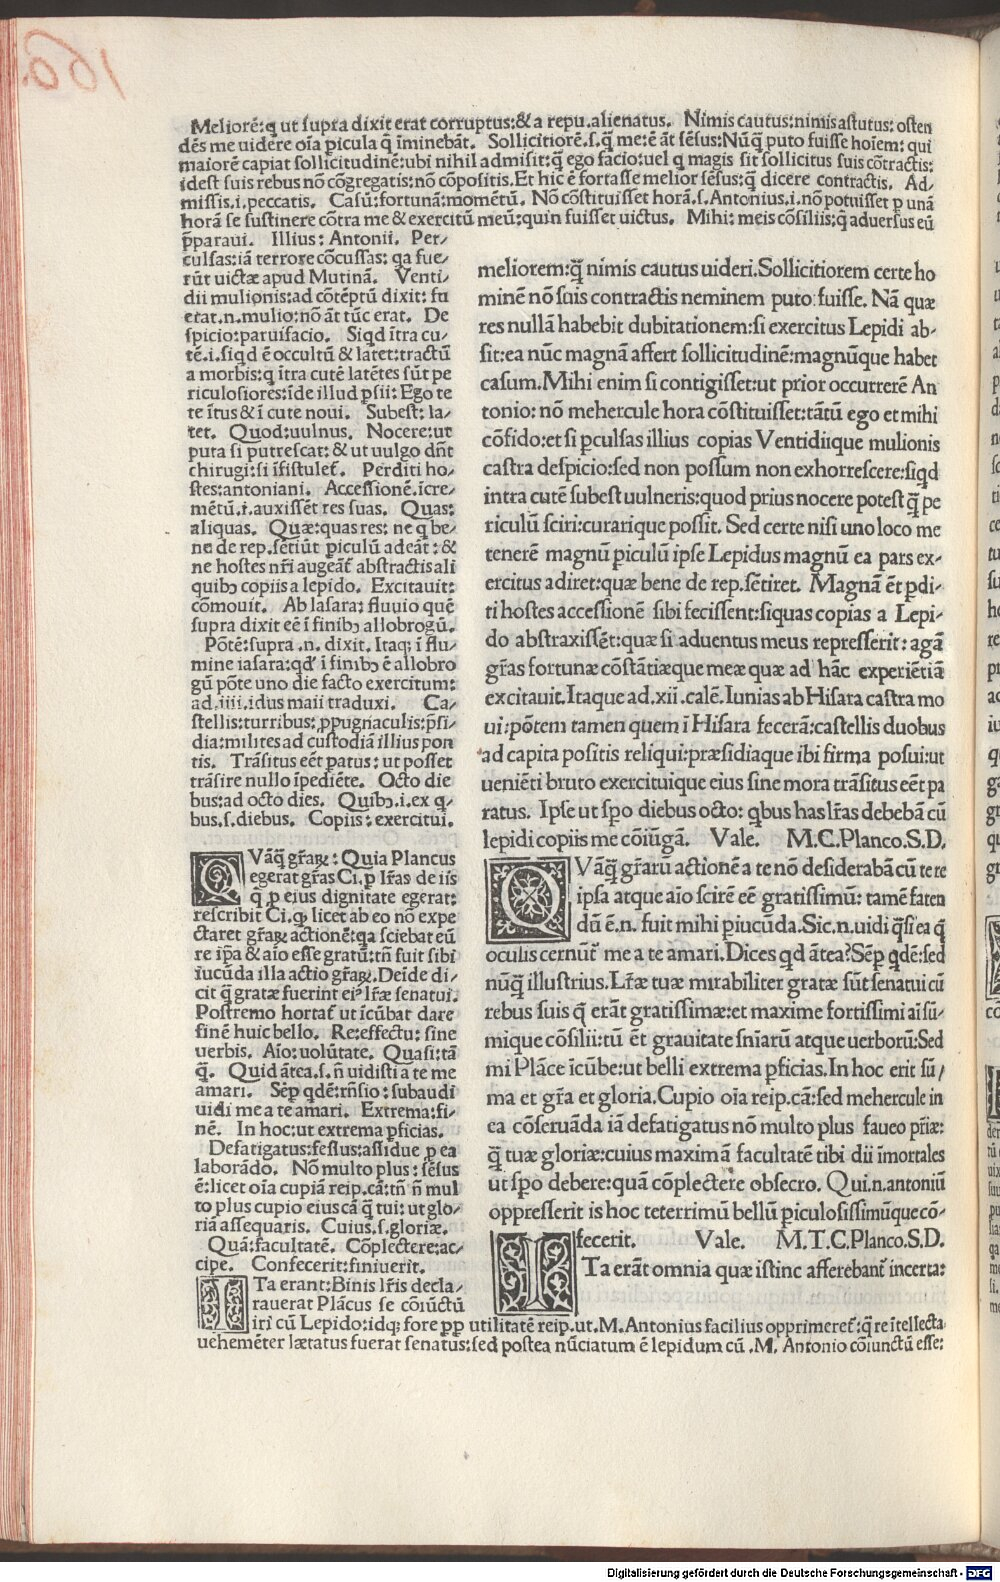 Meliorē:q ut supra dixit erat corruptus:& a repu.alienatus. Nimis cautus:nimis astutus: osten
dēs me uidere oīa picula q̄ īminebāt. Sollicitiorē.s.q̄ me:ē āt sēsus:Nūq̄ puto fuisse hoīem: qui
maiorē capiat sollicitudinē:ubi nihil admisit:q̄ ego facio:uel q magis sit sollicitus suis cōtractis:
idest suis rebus nō cōgregatis:nō cōpositis.Et hic ē fortasse melior sēsus:q̄ dicere contractis. Ad/
missis.i.peccatis. Casū:fortunā:momētū. Nō cōstituisset horā.s.Antonius.i.nō potuisset p unā
horā se sustinere cōtra me & exercitū meū:quin fuisset uictus. Mihi: meis cōsiliis:q̄ aduersus eū
p̄paraui. Illius: Antonii. Per/
culsas:iā terrore cōcussas: qa fue/
rūt uictæ apud Mutinā. Venti/
dii mulionis:ad cōtēptū dixit: fu
erat.n.mulio:nō āt tūc erat. De
spicio:paruifacio. Siqd ītra cu/
tē.i.siqd ē occultū & latet:tractū
a morbis:q ītra cutē latētes sūt pe
riculosiores:īde illud psii: Ego te
te ītus & ī cute noui. Subest: la/
tet. Quod:uulnus. Nocere:ut
puta si putrescat: & ut uulgo dn̄t
chirugi:si īsistulet̄. Perditi ho/
stes:antoniani. Accessionē.īcre/
mētū.i.auxissēt res suas. Quas:
aliquas. Quæ:quas res: ne q be/
ne de rep.sētiūt piculū adeāt: &
ne hostes nr̄i augeāt̄ abstractis ali
quibꝫ copiis a lepido. Excitauit:
cōmouit. Ab Iasara: fluuio quē
supra dixit eē ī finibꝫ allobrogū.
Pōtē:supra .n. dixit. Itaqꝫ ī flu/
mine iasara:qd' ī finibꝫ ē allobro
gū pōte uno die facto exercitum:
ad.iiii.idus maii traduxi. Ca/
stellis:turribus: p̄pugnaculis:p̄si/
dia:milites ad custodiā illius pon
tis. Trāsitus eēt patus: ut posset
trāsire nullo īpediēte. Octo die
bus:ad octo dies. Quibꝫ.i.ex q/
bus.s.diebus. Copiis: exercitui.
QVāq̄ gr̄aꝝ: Quia Plancus
egerat gr̄as Ci.p lr̄as de iis
q p eius dignitate egerat:
rescribit Ci.q licet ab eo nō expe
ctaret gr̄aꝝ actionē:qa sciebat eū
re īpa & aīo esse gratū:tn̄ fuit sibi
iucūda illa actio gr̄aꝝ.Deīde di/
cit q̄ gratæ fuerint ei lr̄æ senatui.
Postremo hortat̄ ut īcūbat dare
finē huic bello. Re:effectu: sine
uerbis. Aīo:uolūtate. Quasi:tā
q̄. Quid ātea.s.n̄ uidisti a te me
amari. Sēp qdē:rn̄sio: subaudi
uidi me a te amari. Extrema:fi/
nē. In hoc:ut extrema pficias.
Defatigatus:fessus:assidue p ea
laborādo. Nō multo plus: sēsus
ē:licet oīa cupiā reip.cā:tn̄ n̄ mul
to plus cupio eius cā q̄ tui: ut glo/
riā assequaris. Cuius.s.gloriæ.
Quā:facultatē. Cōplectere:ac/
cipe. Confecerit:finiuerit.
ITa erant:Binis lr̄is decla/
rauerat Plācus se cōiūctū
iri cū Lepido:idqꝫ fore p̄p utilitatē reip.ut.M.Antonius facilius opprimeret̄:q̄ re ītellecta
uehemēter lætatus fuerat senatus:sed postea nūciatum ē lepidum cū .M. Antonio cōiunctū esse:
meliorem:q̄ nimis cautus uideri.Sollicitiorem certe ho
minē nō suis contractis neminem puto fuisse. Nā quæ
res nullā habebit dubitationem:si exercitus Lepidi ab/
sit:ea nūc magnā affert sollicitudinē:magnūque habet
casum.Mihi enim si contigisset:ut prior occurrerē An
tonio: nō mehercule hora cōstituisset:tātū ego et mihi
cōfido:et si pculsas illius copias Ventidiique mulionis
castra despicio:sed non possum non exhorrescere:siqd
intra cutē subest uulneris:quod prius nocere potest q̄ pe
riculū sciri:curarique possit. Sed certe nisi uno loco me
tenerē magnū piculū ipse Lepidus magnū ea pars ex/
ercitus adiret:quæ bene de rep.sētiret. Magnā ēt pdi/
ti hostes accessionē sibi fecissent:siquas copias a Lepi/
do abstraxissēt:quæ si aduentus meus represserit: agā
gr̄as fortunæ cōstātiæque meæ quæ ad hāc experiētiā
excitauit.Itaque ad.xii.calē.Iunias ab Hisara castra mo
ui:pōtem tamen quem ī Hisara fecerā:castellis duobus
ad capita positis reliqui:præsidiaque ibi firma posui:ut
ueniēti bruto exercituique eius sine mora trāsitus eēt pa
ratus. Ipse ut spo diebus octo: qbus has lr̄as debebā cū
lepidi copiis me cōiūgā. Vale. M.C.Planco.S.D.
QVāq̄ gr̄arū actionē a te nō desiderabā cū te re
ipsa atque aīo scirē eē gratissimū: tamē faten
dū ē.n. fuit mihi piucūda.Sic.n.uidi q̄si ea q̄
oculis cernunt̄ me a te amari.Dices qd ātea?Sēp qdē:sed
nūq̄ illustrius. Lr̄æ tuæ mirabiliter gratæ sūt senatui cū
rebus suis q̄ erāt gratissimæ:et maxime fortissimi aīsū/
mique cōsilii:tū ēt grauitate sn̄iarū atque uerborū:Sed
mi Plāce īcūbe:ut belli extrema pficias.In hoc erit sū/
ma et gr̄a et gloria.Cupio oīa reip.cā:sed mehercule in
ea cōseruāda iā defatigatus nō multo plus faueo pr̄iæ:
q̄ tuæ gloriæ:cuius maximā facultatē tibi dii īmortales
ut spo debere:quā cōplectere obsecro. Qui.n.antoniū
oppresserit is hoc teterrimū bellū piculosissimūque cō/
fecerit. Vale. M.T.C.Planco.S.D.
ITa erāt omnia quæ istinc afferebant̄ incerta:
Digitalisierung gefördert durch die Deutsche Forschungsgemeinschaft - DFG